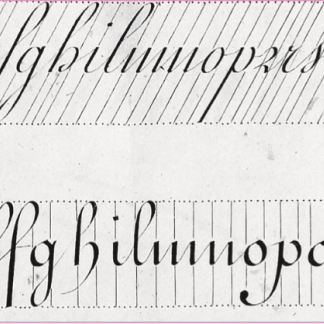 fghilmnopzrs
ffghilmnopq